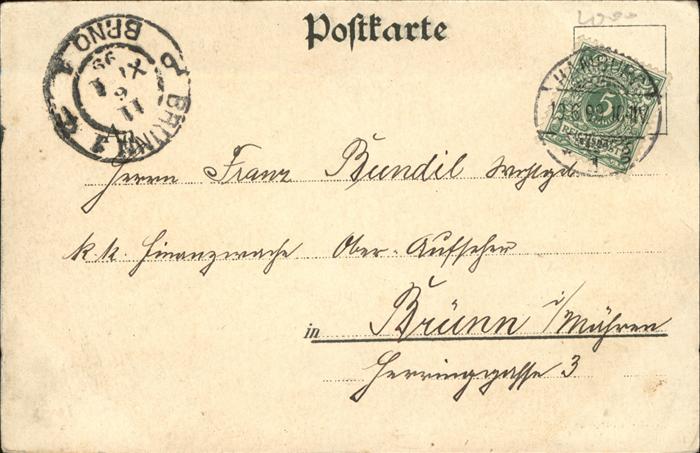 Postkarte
BRÜNN
BRNO
HAMBURG
5
REICHSPOST
1
Herrn Franz Bundil Wohlgeb.
k. k. Finanzwache Ober-Aufseher
in Brünn i/Mähren
Herringgasse 3